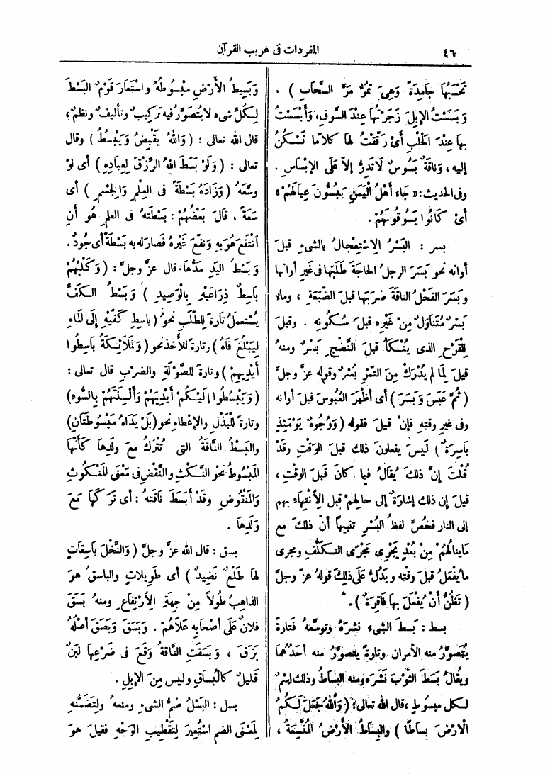 ٤٦
المفردات فى غريب القرآن
تَحْسَبُهَا جَامِدَةً وَهِىَ تَمُرُّ مَرَّ السَّحَابِ ) .
وَبَسَسْتُ الإِبِلَ زَجَرْتُهَا عِنْدَ السَّوْقِ، وَأَبْسَسْتُ
بِهَا عِنْدَ الحَلْبِ أَىْ رَقَّقْتُ لَهَا كَلَامًا تَسْكُنُ
إليه ، وَنَاقَةٌ بَسُوسٌ لَا تَدُرُّ إلَّا عَلَى الإِبْسَاسِ .
وفى الحديث: « جَاءَ أَهْلُ الْيَمَنِ يَبُسُّونَ عِيَالَهُمْ »
أى كَانُوا يَسُوقُونَهُمْ.
بسر : البَسْرُ الاسْتِعْجَالُ بالشىءِ قبلَ
أوانه نحو بَسَرَ الرجلُ الحَاجَةَ طَلَبَهَا فى غيرِ أوانها
وبَسَرَ الفَحْلُ الناقةَ ضَرَبَهَا قبلَ الضَّبَعَةِ ، وماءٌ
بَسْرٌ مُتَنَاوَلٌ مِنْ غَيْرِهِ قبلَ سُكُونِهِ . وقيلَ
لِلْقَرْحِ الذى يُنْكَأُ قبلَ النُّضْجِ بَسْرٌ ومنه
قيلَ لِمَا لَمْ يُدْرَكْ مِنَ التَّمْرِ بُسْرٌ وقوله عزَّ وجلَّ
( ثُمَّ عَبَسَ وَبَسَرَ ) أى أظْهَرَ العُبُوسَ قبلَ أوانه
وفى غيرِ وقتهِ فإنْ قيلَ فقوله ( وَوُجُوهٌ يَوْمَئِذٍ
بَاسِرَةٌ ) ليسَ يفعلونَ ذلكَ قبلَ الوَقْتِ وقَدْ
قُلْتَ إنَّ ذلكَ يُقَالُ فيما كانَ قبلَ الوقتِ ،
قيلَ إن ذلك إشارَةٌ إلى حالِهمْ قبلَ الانتهاء بهم
إلى النارِ فخُصَّ لفظُ البُسْرِ تنبيهًا أنَّ ذلكَ مع
ما يَنالُهُمْ مِنْ بُعْدٍ يَجْرِى مَجْرَى التَّكَلُّفِ ومجرى
ما يُفْعَلُ قبلَ وقته ويَدُلُّ عَلَى ذلكَ قولهُ عزّ وجلّ
( تَظُنُّ أَنْ يُفْعَلَ بِهَا فَاقِرَةٌ ) .
بسط : بَسَطَ الشىءَ نَشَرَهُ وتوسَّعُهُ فَتَارَةً
يُتَصَوَّرُ منه الأمران وتارةً يتصورُ منه أحدُهما
ويقالُ بَسَطَ الثَّوْبَ نَشَرَهُ ومنه البِسَاطُ وذلك اسْمٌ
لكل مبسوطٍ ، قال الله تعالى: ( وَاللهُ جَعَلَ لَكُمُ
الأَرْضَ بِسَاطًا ) والبِسَاطُ الأَرْضُ المُتَّسِعَةُ ،
وَبَسِيطُ الأَرْضِ مَبْسُوطُهُ واسْتَعَارَ قومٌ البَسْطَ
لِكلِّ شىء لا يُتَصَوَّرُ فيه تركيبٌ وتأليفٌ ونظمٌ ؛
قال الله تعالى : ( وَاللهُ يَقْبِضُ وَيَبْسُطُ ) وقال
تعالى : ( وَلَوْ بَسَطَ اللهُ الرِّزْقَ لِعِبَادِهِ ) أى لَوْ
وسَّعَهُ ( وَزَادَهُ بَسْطَةً فى العِلْمِ وَالْجِسْمِ ) أى
سَعَةً . قالَ بَعْضُهُمْ : بَسْطَتُهُ فى العلمِ هو أن
انتَفَعَ هُوَ بِهِ ونَفَعَ غَيْرَهُ فصارَ له به بَسْطَةٌ أى جُودٌ .
وَبَسْطُ اليَدِ مَدُّهَا. قال عزَّ وجلَّ : ( وَكَلْبُهُمْ
بَاسِطٌ ذِرَاعَيْهِ بِالْوَصِيدِ ) وَبَسْطُ الكَفِّ
يُسْتعملُ تارةً للطَّلَبِ نحوُ ( بَاسِطِ كَفَّيْهِ إِلَى الْمَاءِ
لِيَبْلُغَ فَاهُ ) وتارةً للأَخْذِ نحو ( وَالْمَلَائِكَةُ بَاسِطُوا
أَيْدِيهِمْ ) وتارةً للصَّوْلَةِ والضربِ قال تعالى :
( وَيَبْسُطُوا إِلَيْكُمْ أَيْدِيَهُمْ وَأَلْسِنَتَهُمْ بِالسُّوءِ )
وتارةً للبَذْلِ والإعْطاءِ نحو ( بَلْ يَدَاهُ مَبْسُوطَتَانِ )
والبِسْطُ النَّاقَةُ التى تُتْرَكُ مع ولدِهَا كَأَنَّهَا
المَبْسُوطُ نحوُ النِّكْثِ والنِّقْضِ فى مَعْنَى المَنْكُوثِ
وَالمَنْقُوضِ وقد أَبْسَطَ نَاقَتَهُ : أى تَرَكَهَا مَعَ
وَلَدِهَا .
بسق : قال الله عزَّ وجلَّ ( وَالنَّخْلَ بَاسِقَاتٍ
لَهَا طَلْعٌ نَضِيدٌ ) أى طَوِيلَاتٍ والبَاسِقُ هو
الذاهبُ طُولًا مِنْ جِهَةِ الارْتِفَاعِ ومنه بَسَقَ
فلانٌ عَلَى أَصْحَابِهِ عَلَاهُمْ . وَبَسَقَ وَبَصَقَ أَصْلُهُ
بَزَقَ ، وَبَسَقَتِ النَّاقَةُ وَقَعَ فى ضَرْعِهَا لَبَنٌ
قَلِيلٌ كالْبُسَاقِ وليس مِنَ الإِبِلِ .
بسل : البَسْلُ ضَمُّ الشىءِ ومنعهُ ولِتَضَمُّنِهِ
لِمَعْنَى الضم اسْتُعِيرَ لِتَقْطِيبِ الوَجْهِ فقيل هو